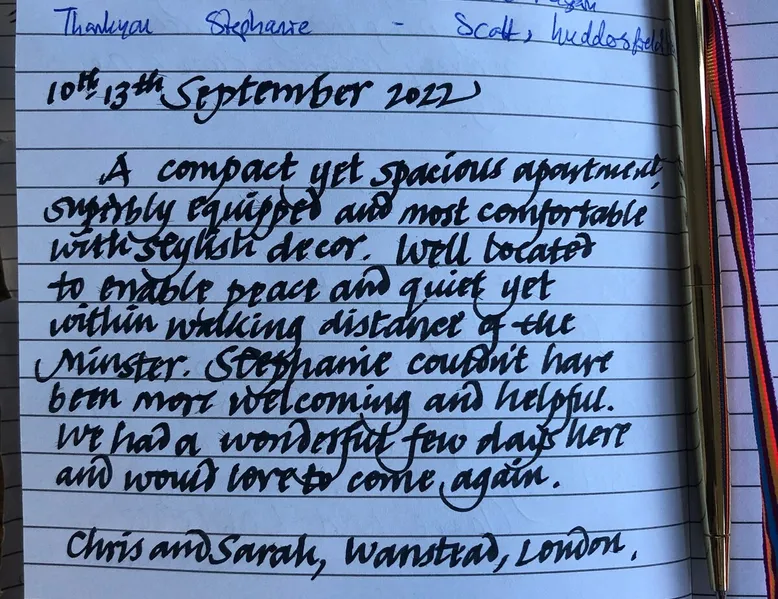 Thankyou Stephanie - Scott, Huddersfield
10th-13th September 2022
A compact yet spacious apartment,
superbly equipped and most comfortable
with stylish decor. Well located
to enable peace and quiet yet
within walking distance of the
Minster. Stephanie couldn't have
been more welcoming and helpful.
We had a wonderful few days here
and would love to come again.
Chris and Sarah, Wanstead, London.